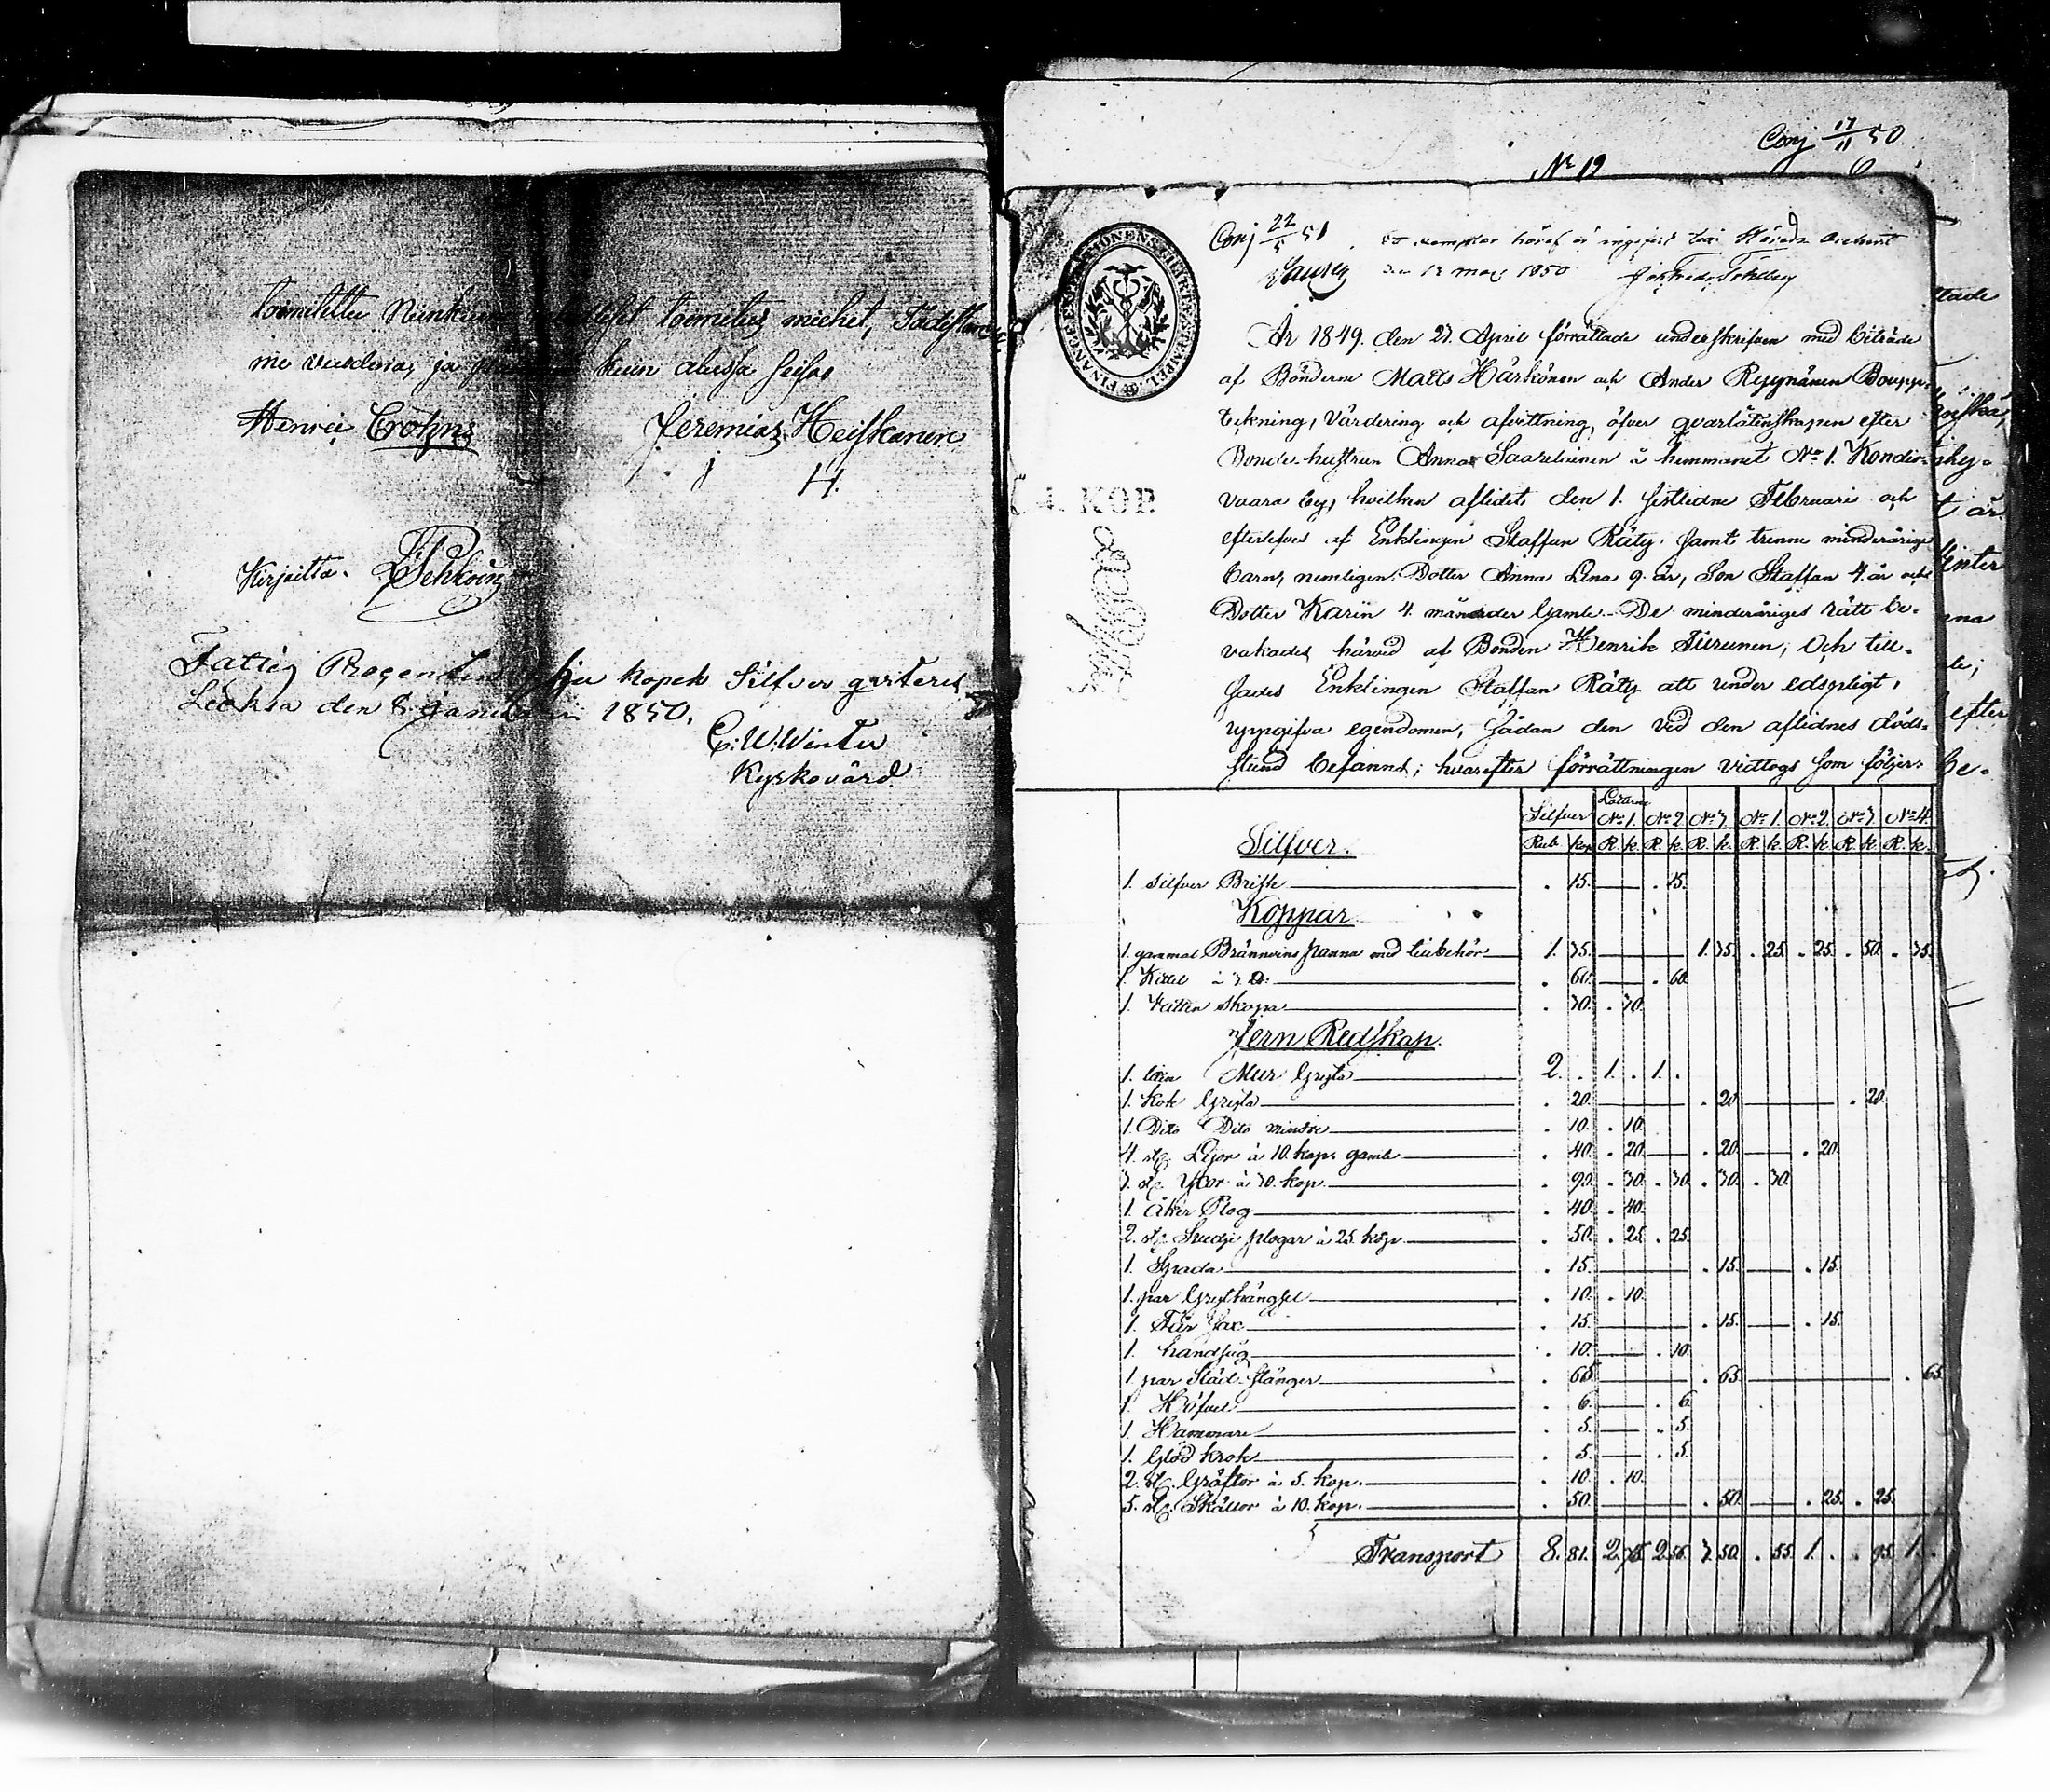 toimitettu Niinkuin toimitus miehet, Todista
me vakuus, ja kuin alussa seisoo
Henric Crohns Jeremias Heiskanen
H.
Kirjoitta.
Fattig Procenten kopek Silfver qvitteras
Leoksa den 8. Januarii 1850.
C: W: Winter
Kyrkovärd.
Conj 17/11 50
No 12 6
FINANCE EXPEDITIONENS CHARTÆ STEMPEL.
KOP
Conj 22/5 51. Ex emplar häraf är ingifvit till Härads Archivet
den 12 may 1850
År 1849. den 27. April förrättade underskrifven med biträde
af Bönderne Matts Härkönen och Ander Ryynänen Boupp-
tekning, Värdering och afvittning, öfver qvarlåtenskapen efter
Bonde-hustrun Anna Saarelainen å hemmanet No 1. Kondio-
vaara by, hvilken aflidit den 1. sistledne Februari och
efterlefves af Enklingen Staffan Räty. samt trenne minderårige
barn, nemligen: Dotter Anna Lena 9. år, Son Staffan 4. år och
Dotter Karin 4. månader gamle. De minderåriges rätt be-
vakades härvid af Bonden Henrik Turunen; Och till-
sades Enklingen Staffan Räty att under edspligt,
uppgifva egendomen, sådan den ved den aflidnes döds-
stund befanns; hvarefter förrättningen vidtogs som följer:
Silfver Lotterne No 1. No 2 No 3. No 1. No 2. No 3. No 4.
Rub. kop R. k. R. k. R. k. R. k. R. k. R. k. R. k.
Silfver.
1. Silfver Brisk . 15. . 15.
Koppar
1. gammal Brännvins panna med tillbehör 1. 75. 1. 75. . 25. . 25. . 50. . 75.
1. Kittel . 60. . 60.
1. Vatten skopa . 30. . 30.
Jern Redskap.
1. liten Mur Gryta 2. . 1. . 1. .
1. Kok Gryta . 20. . 20. . 20.
1. Dito Dito mindre . 10. . 10.
4. st. Lijor à 10. kop. gamla . 40. . 20. . 20. . 20.
3. st. Yxor à 30. kop. . 90. . 30. . 30. . 30. . 30.
1. Åker Plog . 40. . 40.
2. st. Svedje plogar à 25. kop. . 50. . 25. . 25.
1. Spada . 15. . 15. . 15.
1. par Grythängsel . 10. . 10.
1. Får Sax . 15. . 15. . 15.
1. handsåg . 10. . 10.
1. par Städ-stänger . 65. . 65. . 65.
1. Höfvel . 6. . 6.
1. Hammare . 5. . 5.
1. Glöd krok . 5. . 5.
2. st. Gräftor à 5. kop. . 10. . 10.
5. st. Skäror à 10. kop. . 50. . 50. . 25. . 25.
Transport 8. 81. 2. 75. 2. 56. 3. 50. . 55. 1. . . 95. 1. .